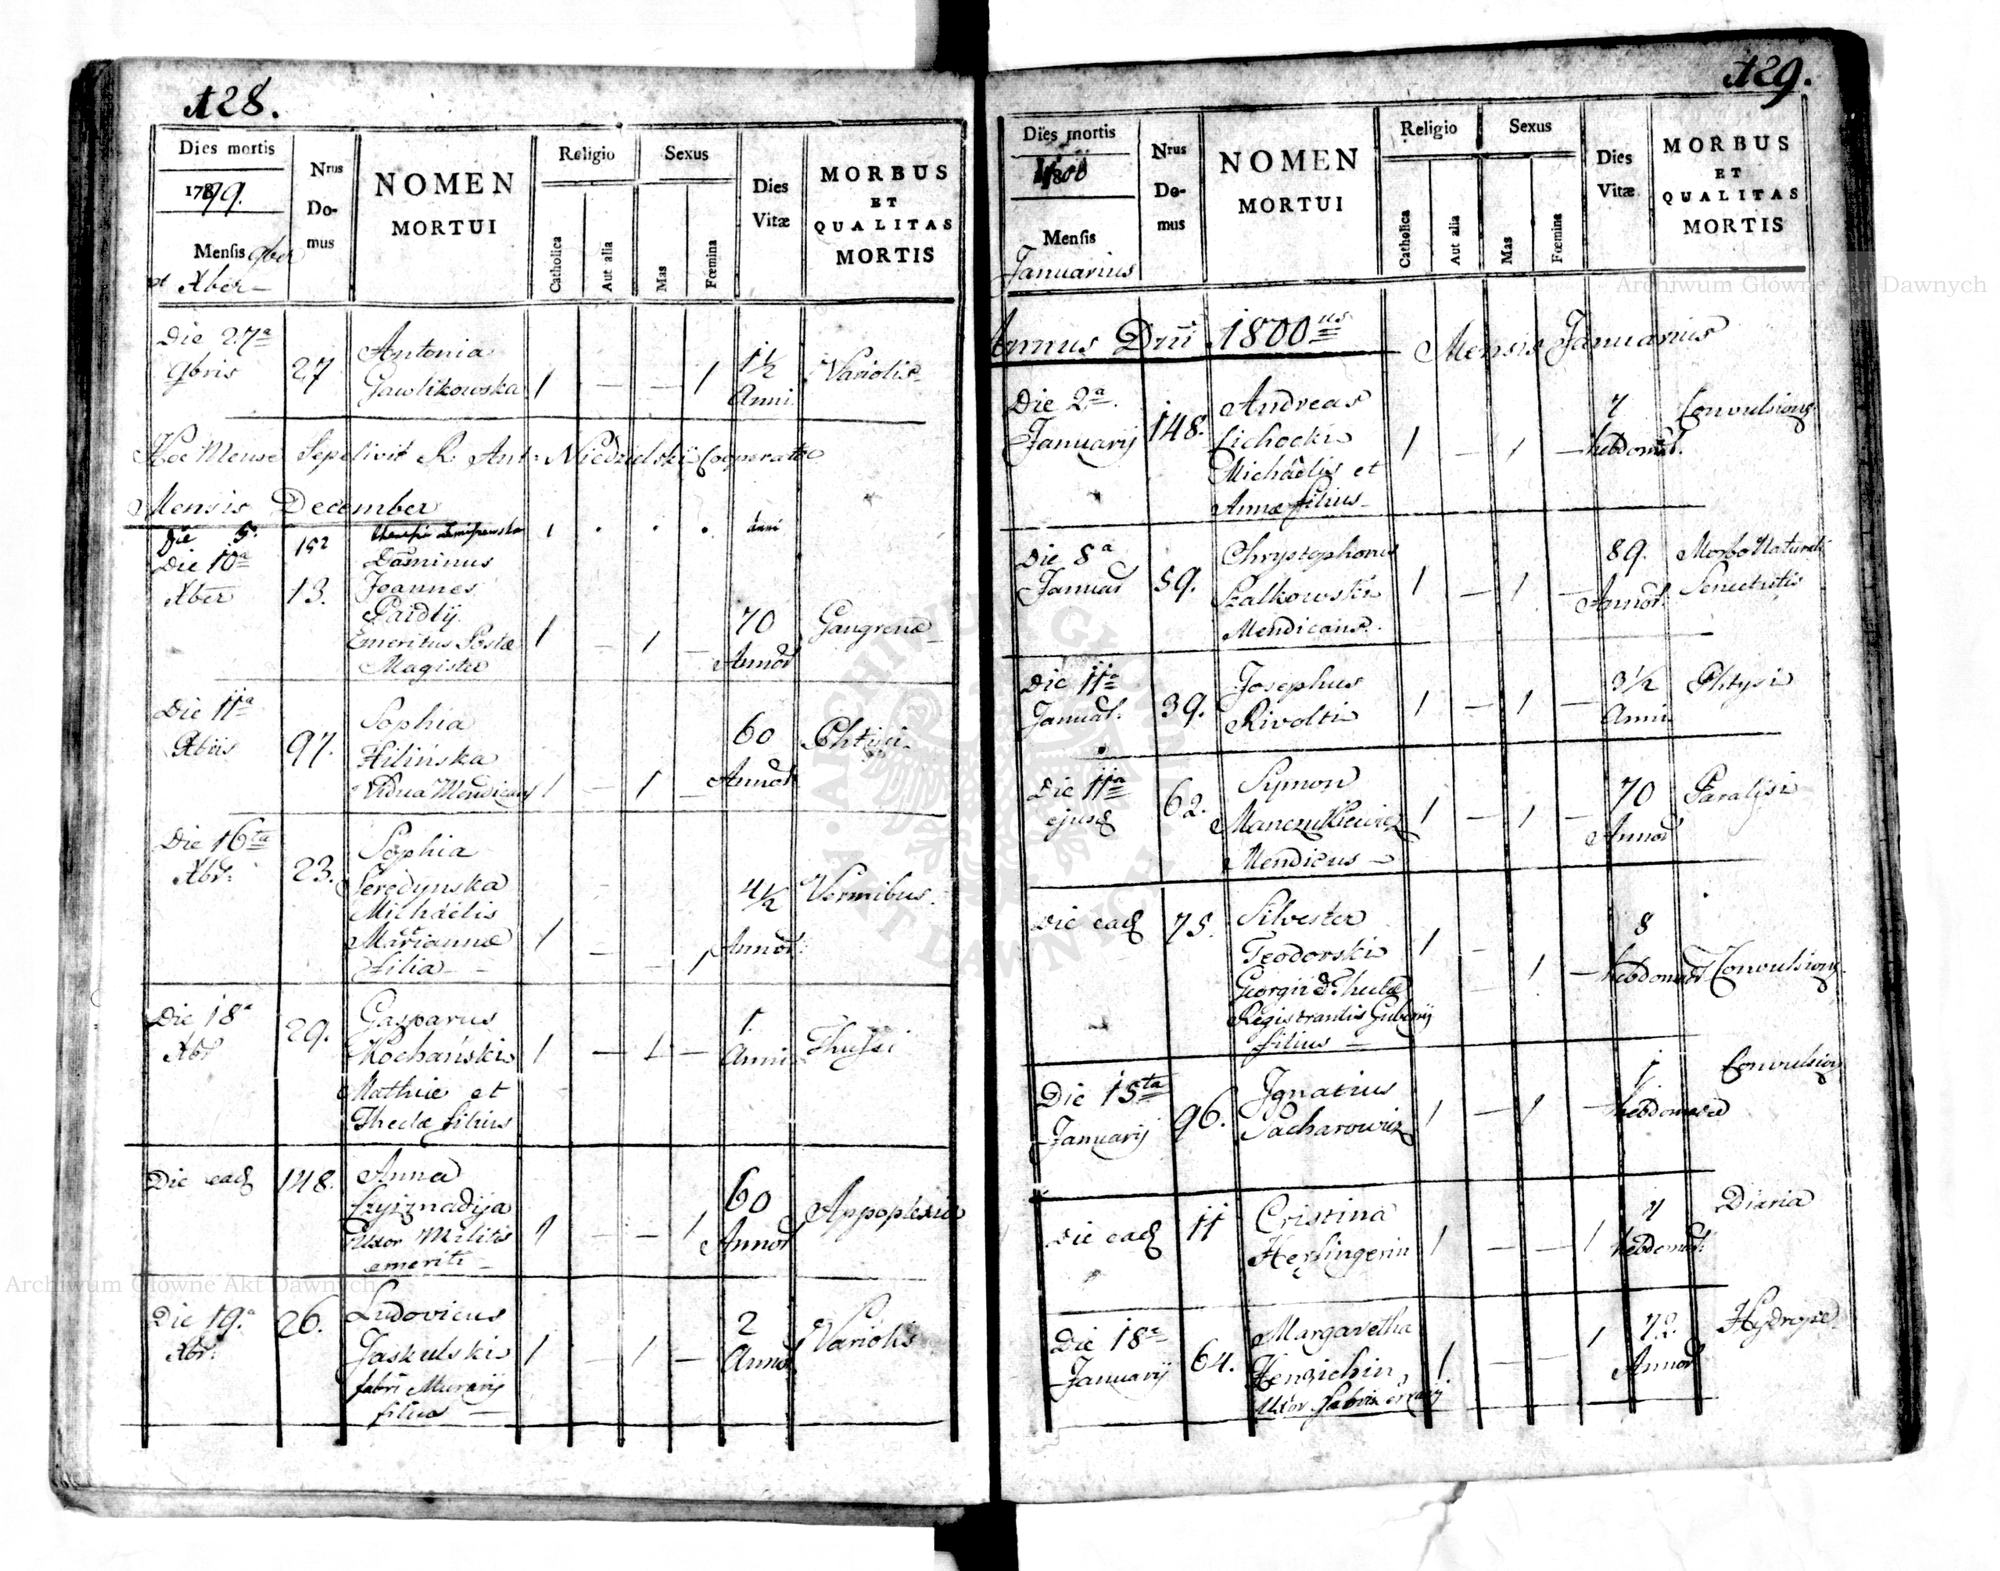 128.
Dies mortis
1799.
Mensis 9ber
et Xber
Nrus
Do-
mus
NOMEN
MORTUI
Religio
Catholica
Aut alia
Sexus
Mas
Fœmina
Dies
Vitæ
MORBUS
ET
QUALITAS
MORTIS
Die 27a
9bris
27
Antonia
Gawlikowska
1 — — 1
1½
Anni
Variolis
Hoc Mense Sepelivit R. Ant: Niedzielski Cooperator
Mensis December
Die 5.
152
1 . . .
Anni
Die 10a
Xber
13.
Dominus
Joannes
Paidly
Emeritus Postæ
Magister
1 — 1 —
70
Annor
Gangrenæ
Die 11a
Xbris
97.
Sophia
Zilińska
Vidua Mendicans
1 — 1 —
60
Annor
Phtisi
Die 16ta
Xbr:
23.
Sophia
Seredynska
Michaëlis
et
Mariannæ
filia
1 — — 1
4½
Annor:
Vermibus.
Die 18a
Xbr
29.
Gasparus
Kochański
Mathiæ et
Theclæ filius
1 — 1 —
1.
Anni
Thussi
Die ead
148.
Anna
Uxor Militis
emeriti
1 — — 1
60
Annor
Appoplexia
Die 19a
Xbr:
26.
Ludovicus
Jaskulski
fabri Murarij
filius
1 — 1 —
2
Annor
Variolis
129.
Dies mortis
1800
Mensis
Januarius
Nrus
Do-
mus
NOMEN
MORTUI
Religio
Catholica
Aut alia
Sexus
Mas
Fœmina
Dies
Vitæ
MORBUS
ET
QUALITAS
MORTIS
Annus Dni 1800us Mensis Januarius
Die 2a
Januarij
148.
Andreas
Cichocki
Michaëlis et
Annæ filius
1 — 1 —
7
hebdomad.
Convulsions
Die 8a
Januar
59.
Chrystophorus
Szalkowski
Mendicans.
1 — 1 —
89.
Annor.
Morbo Naturali
Senectutis
Die 11a
Januar.
39.
Josephus
Rivolti
1 — 1 —
3½
Anni
Phtysi
Die 11a
ejusd
62.
Symon
Manczukiewicz
Mendicus
1 — 1 —
70
Annor
Paralysi
Die ead
75.
Silvester
Teodorski
Georgii
Registrantis Gubernij
filius
1 — 1 —
8
hebdomad
Convulsions
Die 15ta
Januarij
96.
Ignatius
Sacharowicz
1 — 1 —
1
hebdomada
Convulsions
Die ead
11
Cristina
Herfingerin
1 — — 1
7
hebdomad:
Diaria
Die 18a
Januarij
64.
Margaretha
Henrichin
Uxor
1. — — 1
Annor
Hydropsi
Archiwum Główne Akt Dawnych
Archiwum Główne Akt Dawnych
ARCHIWUM GŁÓWNE
AKT DAWNYCH